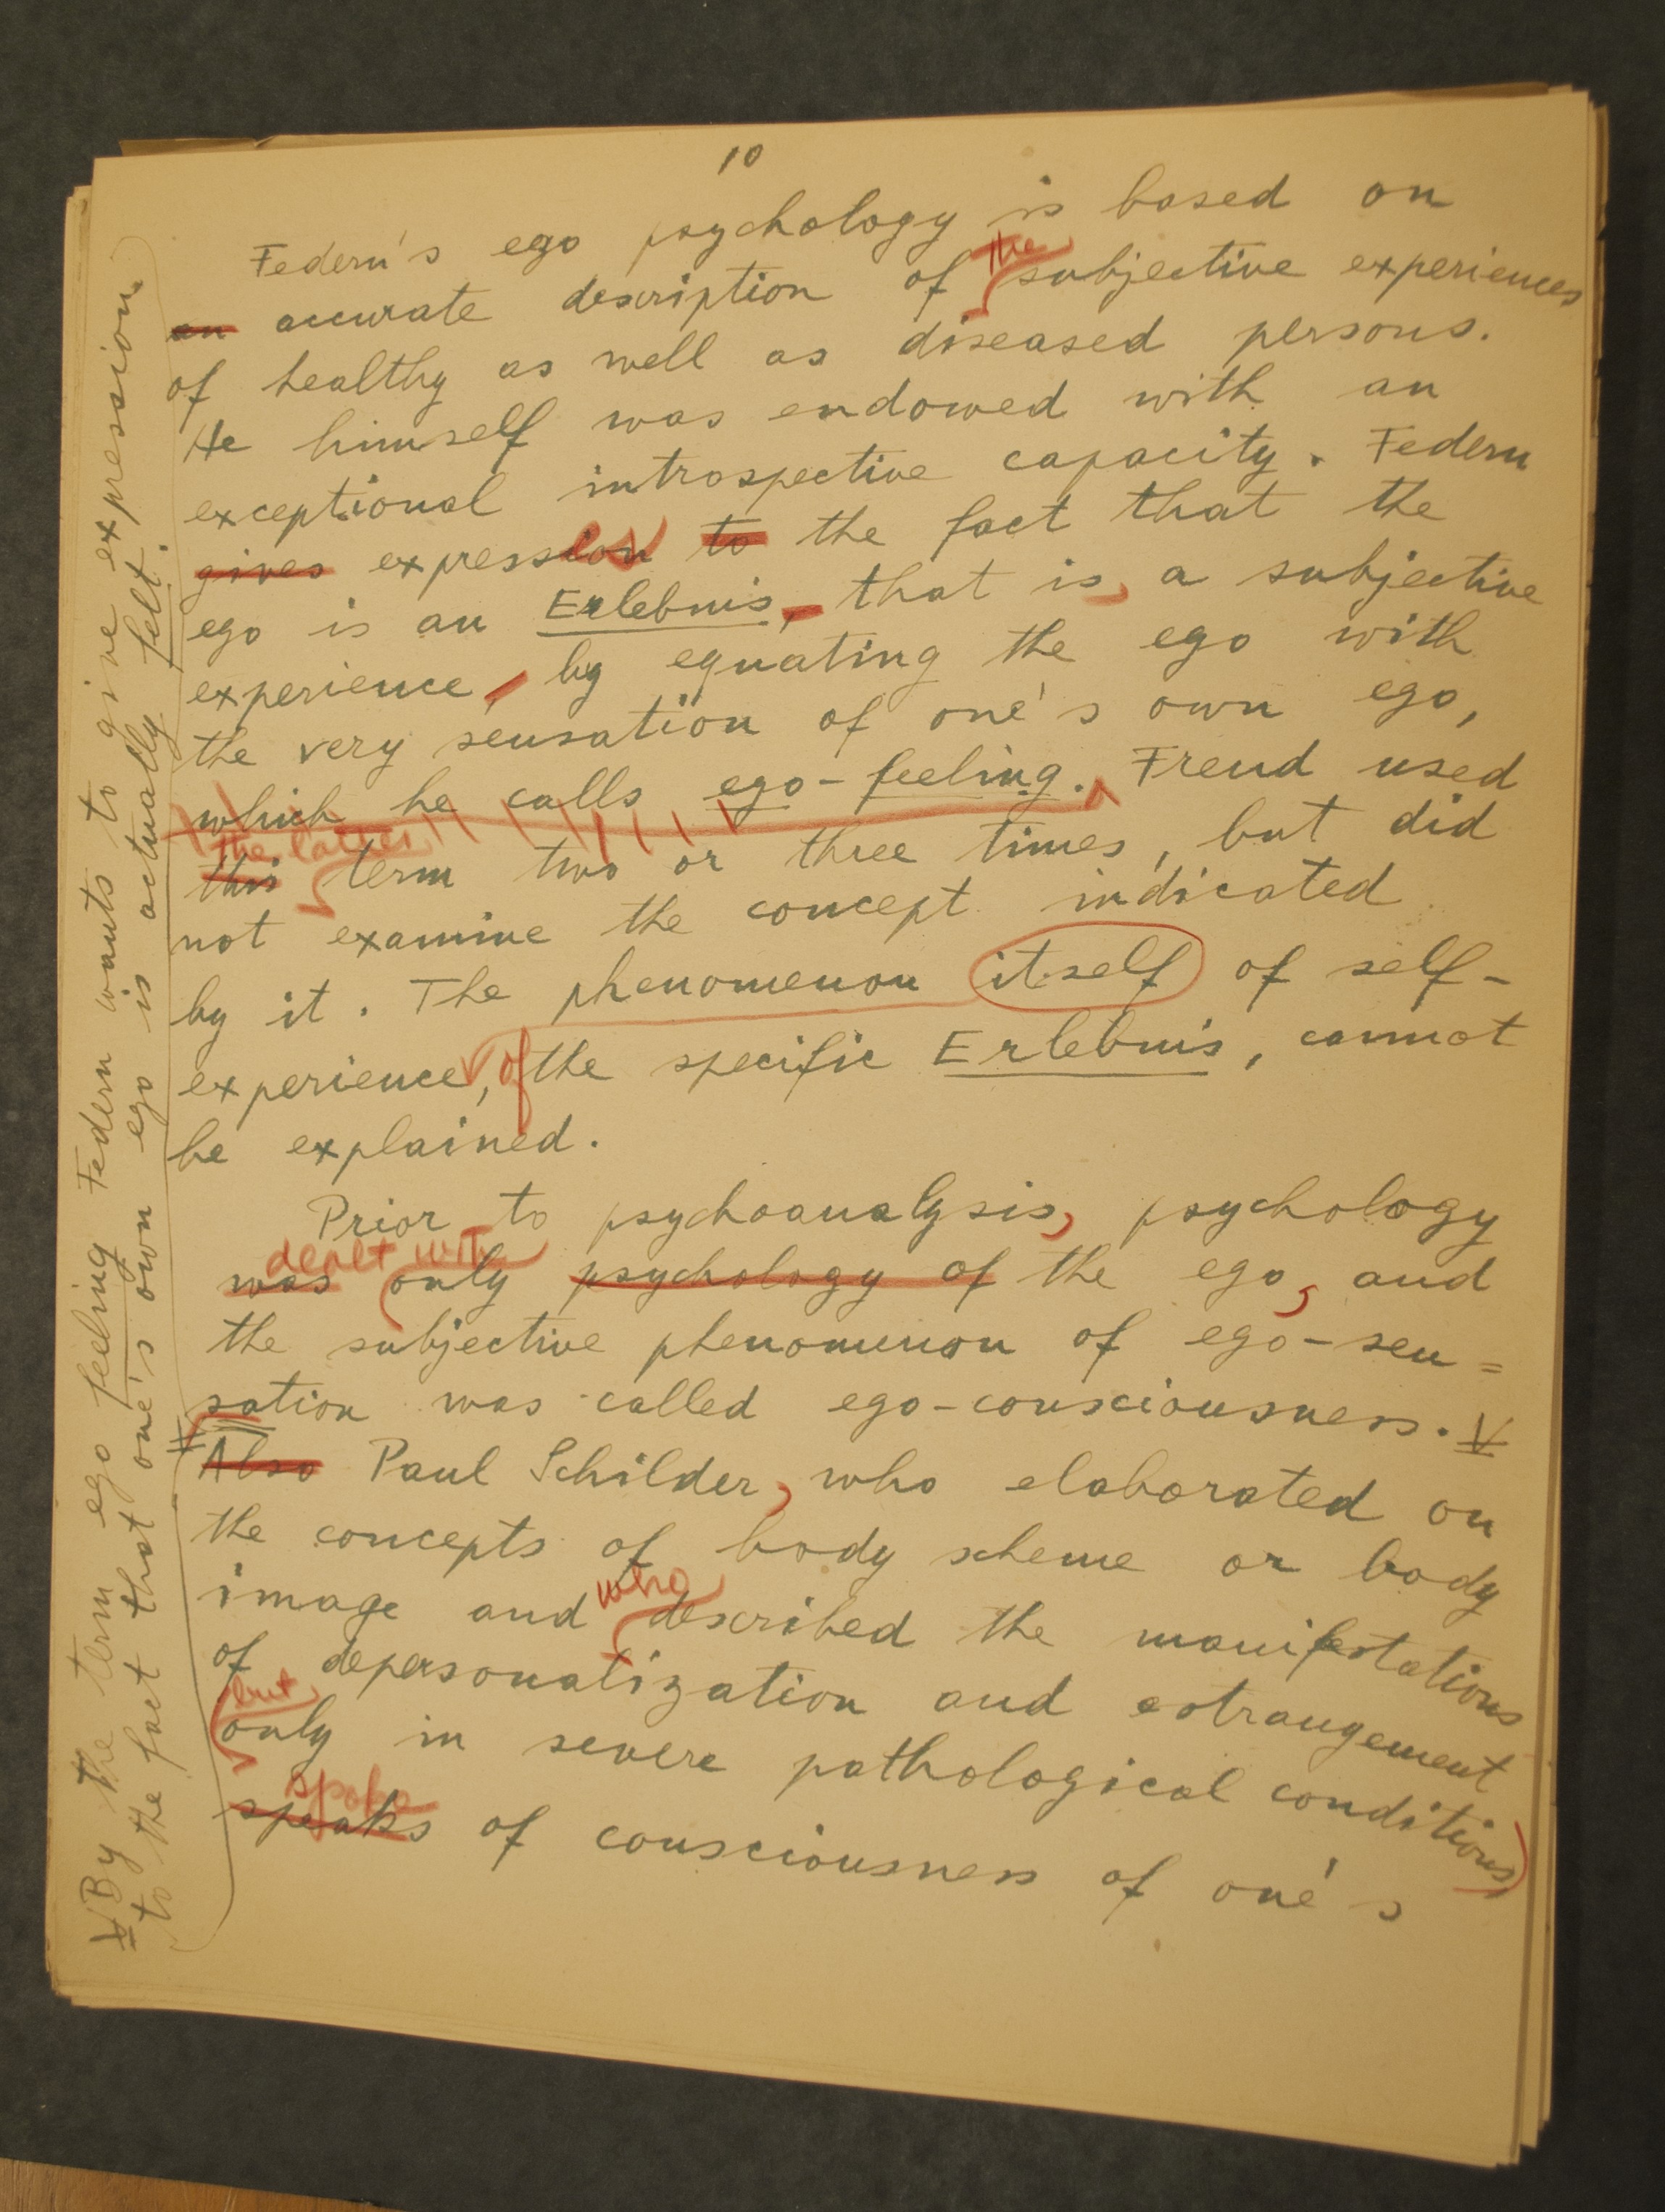 10
Federn's ego psychology is based on
the
an accurate description of subjective experiences
of healthy as well as diseased persons.
He himself was endowed with an
exceptional introspective capacity. Federn
gives expression to the fact that the
ego is an Erlebnis, that is, a subjective
experience, by equating the ego with
the very sensation of one's own ego,
which he calls ego-feeling. Freud used
the latter
this term two or three times, but did
not examine the concept indicated
by it. The phenomenon itself of self-
experience, of the specific Erlebnis, cannot
be explained.
Prior to psychoanalysis, psychology
dealt with
was only psychology of the ego, and
the subjective phenomenon of ego-sen=
sation was called ego-consciousness. V
Also Paul Schilder, who elaborated on
the concepts of body scheme or body
who
image and described the manifestations
of depersonalization and estrangement
but
only in severe pathological conditions,
spoke
speaks of consciousness of one's
V By the term ego feeling Federn wants to give expression
to the fact that one's own ego is actually felt.